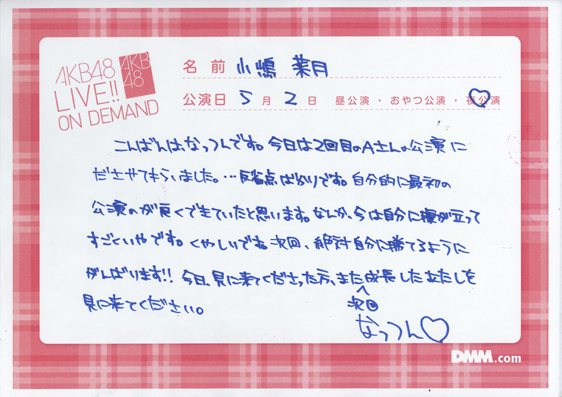 AKB48
LIVE!!
ON DEMAND
AKB
48
名 前 小嶋 菜月
公演日 5 月 2 日 昼公演・おやつ公演・夜公演
こんばんは、なっつんです。今日は2回目のAさんの公演に
ださせてもらいました。…反省点ばかりです。自分的に最初の
公演のが良くできていたと思います。なんか、今は自分に腹が立って
すごくいやです。くやしいです。次回、絶対自分に勝てるように
がんばります!! 今日、見に来てくださった方、また成長したあたしを
次回
見に来てください。
なっつん♡
DMM.com